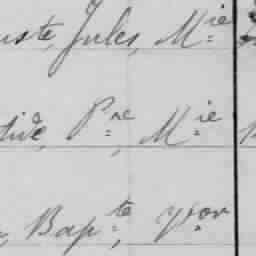 uste, Jules, Mie
Pre, Mie
Bapte, Yvor